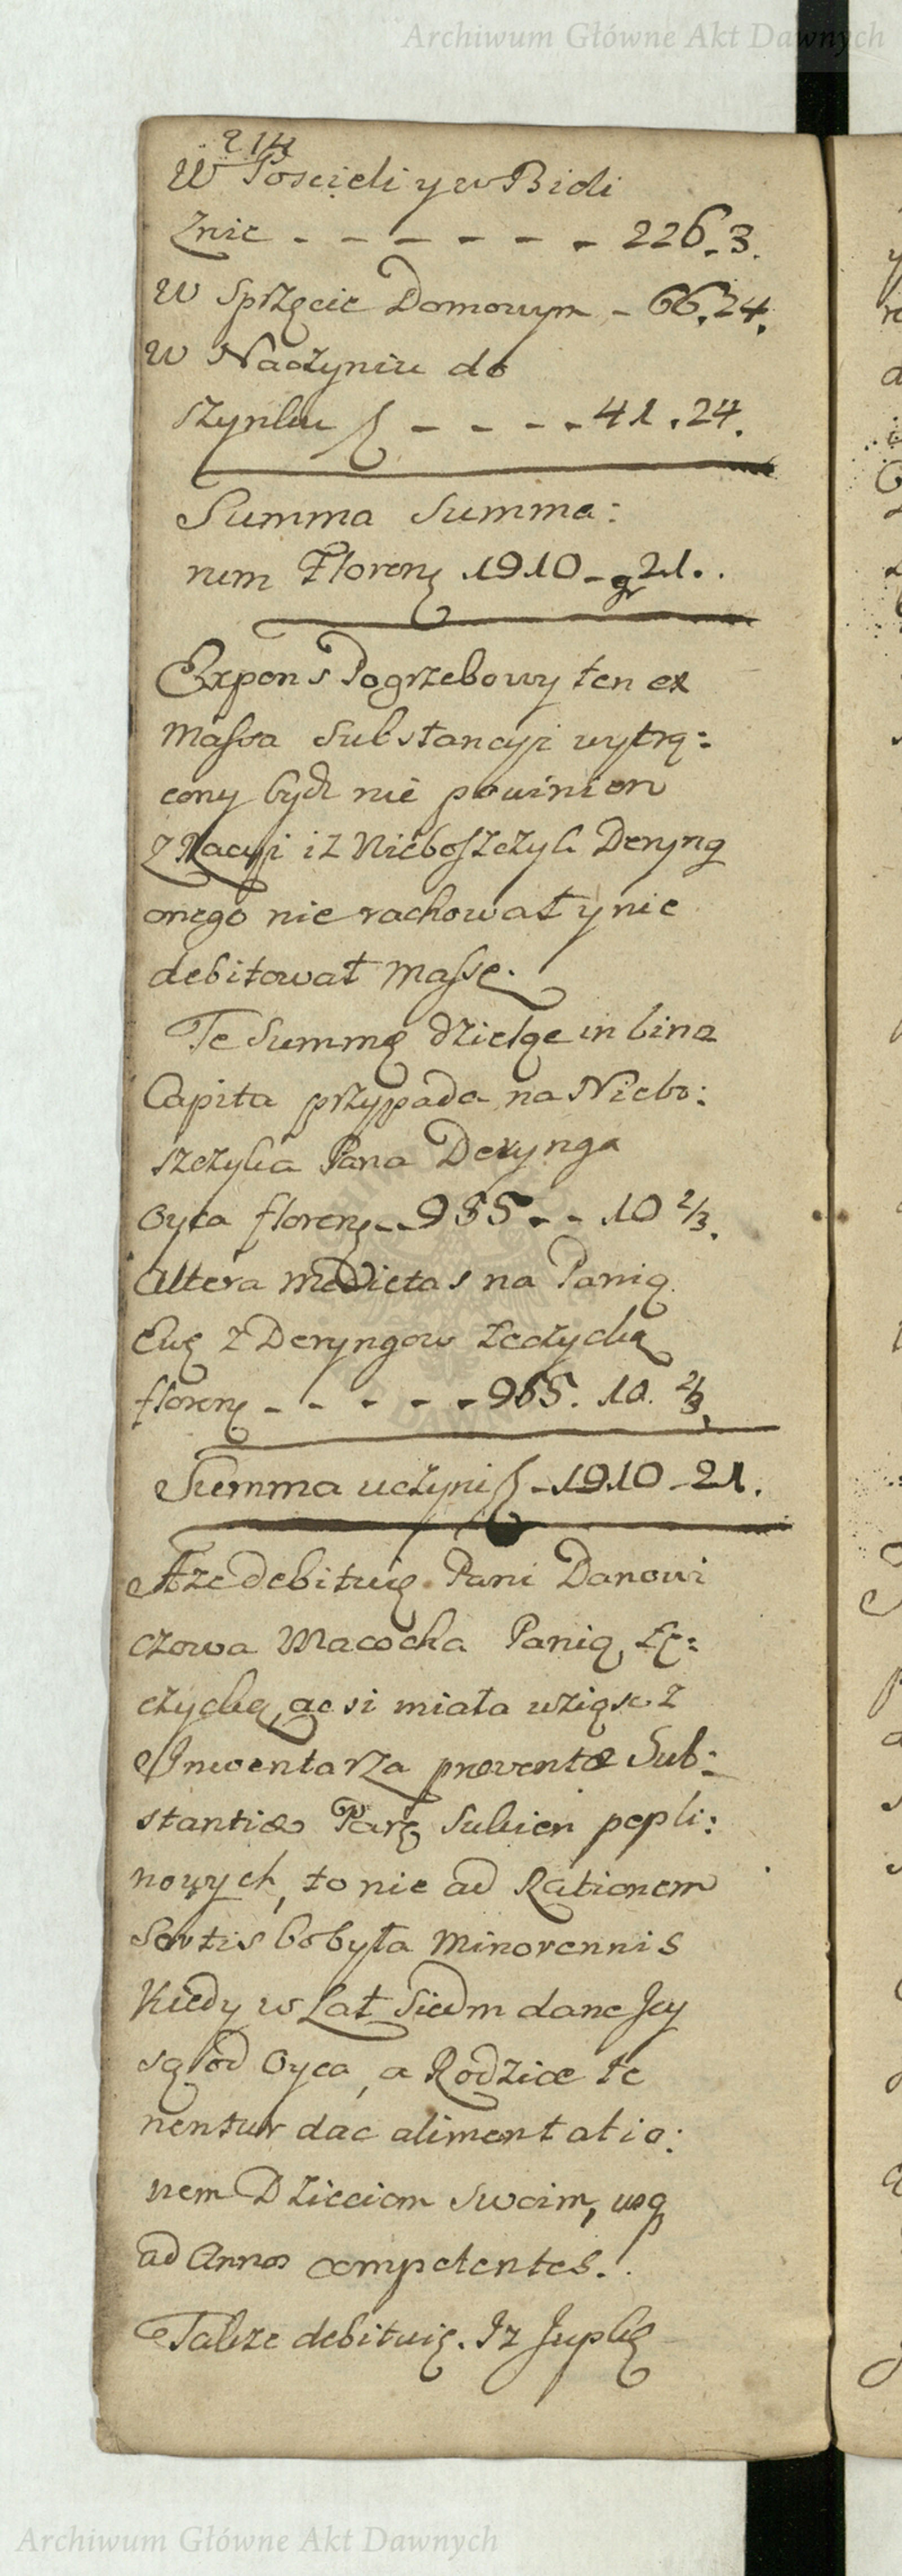 Archiwum Główne Akt Dawnych
214
W Poscieli y w Bieli
znie - - - - - - - 226. 3.
W Sprzęcie Domowym - 66. 24.
W Naczyniu do
szynku f - - - - 41. 24.
Summa Summa:
rum Floren 1910 - gr 21.
Expens Pogrzebowy ten ex
Massa Substancyi wytrą:
cony bydz nie powinien
z Racyi iz Nieboszczyk Deryng
onego nie rachował y nie
debitował Massę.
Te Summę dzieląc in bina
Capita przypada na Niebo:
szczyka Pana Derynga
Oyca floren - - 955 - - 10 2/3.
Altera Medietas na Panią
Ewę z Deryngow Łęczycką
floren - - - - - 955. 10. 2/3.
Summa uczyni f - 1910 - 21.
A ze debituię Pani Danowi
czowa Macocha Panią Łę:
czycką, ac si miała wziąsc z
Inwentarza proventæ Sub:
stantiæ Parę Sukien popli:
nowych, to nie ad Rationem
Sortis bo była Minorennis
Kiedy w Lat Siedm dane Jey
są od Oyca, a Rodzice te
nentur dac alimentatio:
nem Dzieciom Swoim, usq
ad Annos competentes.
Także debituię. Iz Jupkę
Archiwum Główne Akt Dawnych